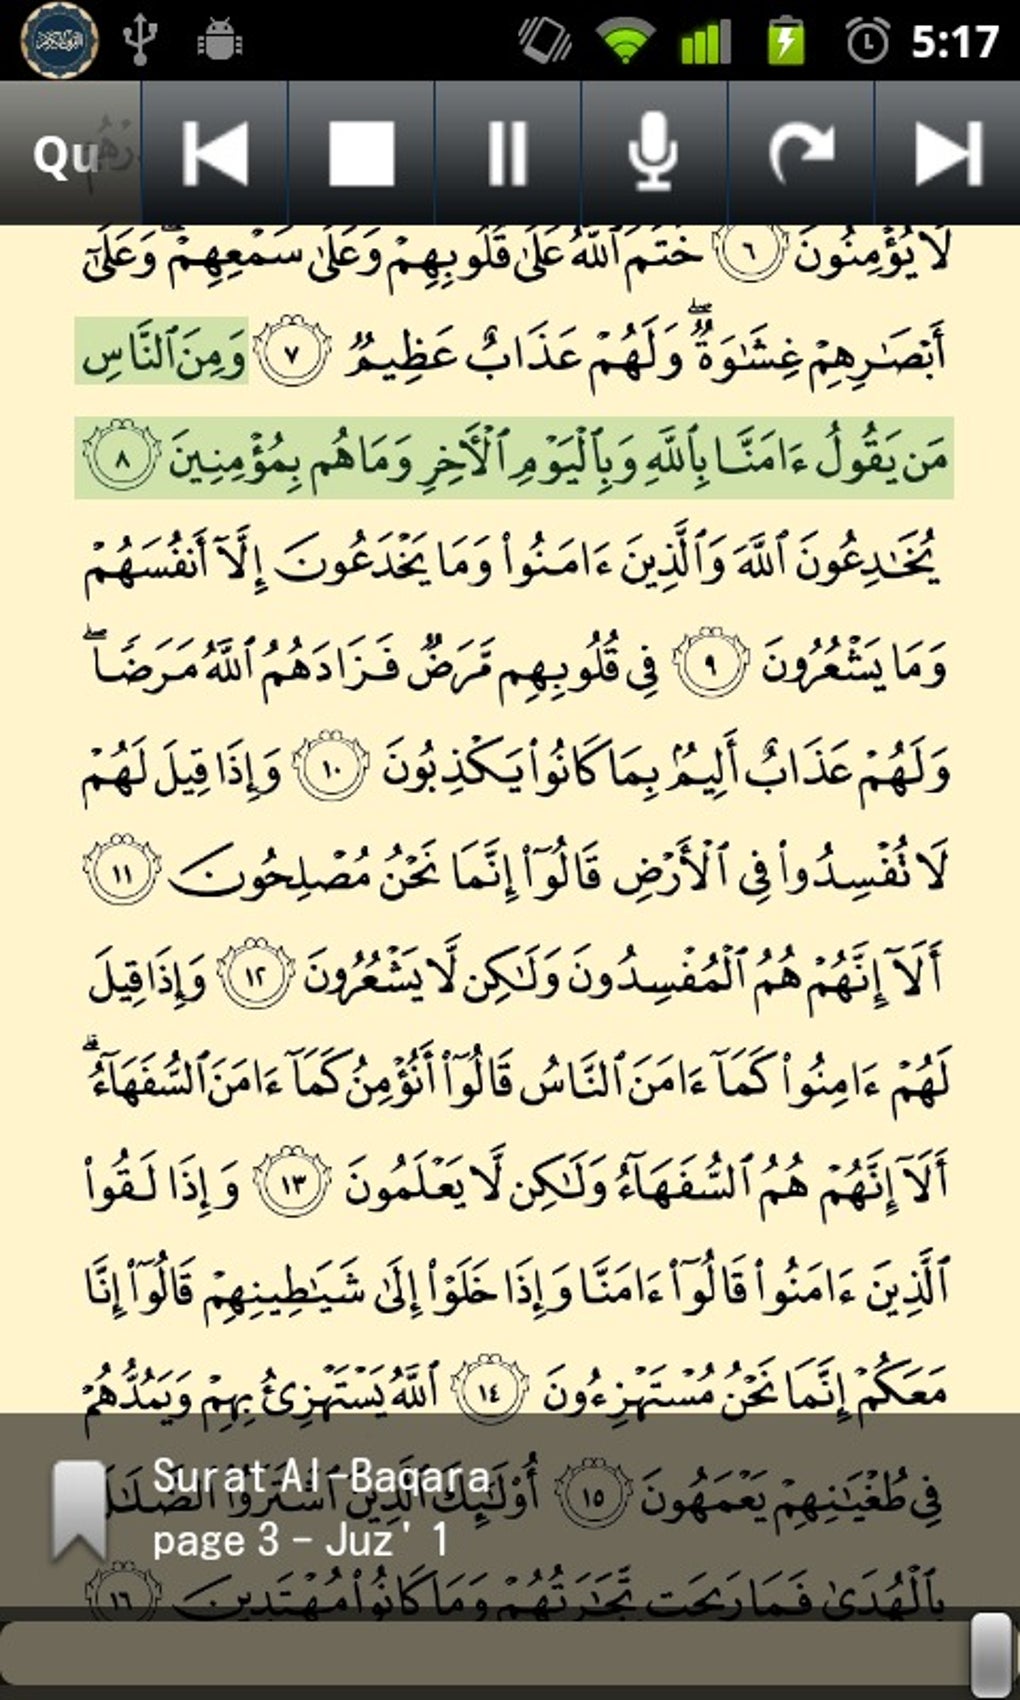 5:17
Qu
لَا يُؤْمِنُونَ ٦ خَتَمَ ٱللَّهُ عَلَىٰ قُلُوبِهِمْ وَعَلَىٰ سَمْعِهِمْ ۖ وَعَلَىٰٓ
أَبْصَـٰرِهِمْ غِشَـٰوَةٌ ۖ وَلَهُمْ عَذَابٌ عَظِيمٌ ٧ وَمِنَ ٱلنَّاسِ
مَن يَقُولُ ءَامَنَّا بِٱللَّهِ وَبِٱلْيَوْمِ ٱلْـَٔاخِرِ وَمَا هُم بِمُؤْمِنِينَ ٨
يُخَـٰدِعُونَ ٱللَّهَ وَٱلَّذِينَ ءَامَنُوا۟ وَمَا يَخْدَعُونَ إِلَّآ أَنفُسَهُمْ
وَمَا يَشْعُرُونَ ٩ فِى قُلُوبِهِم مَّرَضٌ فَزَادَهُمُ ٱللَّهُ مَرَضًا ۖ
وَلَهُمْ عَذَابٌ أَلِيمٌۢ بِمَا كَانُوا۟ يَكْذِبُونَ ١٠ وَإِذَا قِيلَ لَهُمْ
لَا تُفْسِدُوا۟ فِى ٱلْأَرْضِ قَالُوٓا۟ إِنَّمَا نَحْنُ مُصْلِحُونَ ١١
أَلَآ إِنَّهُمْ هُمُ ٱلْمُفْسِدُونَ وَلَـٰكِن لَّا يَشْعُرُونَ ١٢ وَإِذَا قِيلَ
لَهُمْ ءَامِنُوا۟ كَمَآ ءَامَنَ ٱلنَّاسُ قَالُوٓا۟ أَنُؤْمِنُ كَمَآ ءَامَنَ ٱلسُّفَهَآءُ ۗ
أَلَآ إِنَّهُمْ هُمُ ٱلسُّفَهَآءُ وَلَـٰكِن لَّا يَعْلَمُونَ ١٣ وَإِذَا لَقُوا۟
ٱلَّذِينَ ءَامَنُوا۟ قَالُوٓا۟ ءَامَنَّا وَإِذَا خَلَوْا۟ إِلَىٰ شَيَـٰطِينِهِمْ قَالُوٓا۟ إِنَّا
مَعَكُمْ إِنَّمَا نَحْنُ مُسْتَهْزِءُونَ ١٤ ٱللَّهُ يَسْتَهْزِئُ بِهِمْ وَيَمُدُّهُمْ
فِى طُغْيَـٰنِهِمْ يَعْمَهُونَ ١٥ أُو۟لَـٰٓئِكَ ٱلَّذِينَ ٱشْتَرَوُا۟ ٱلضَّلَـٰلَةَ
Surat Al-Baqara
page 3 - Juz' 1
بِٱلْهُدَىٰ فَمَا رَبِحَت تِّجَـٰرَتُهُمْ وَمَا كَانُوا۟ مُهْتَدِينَ ١٦